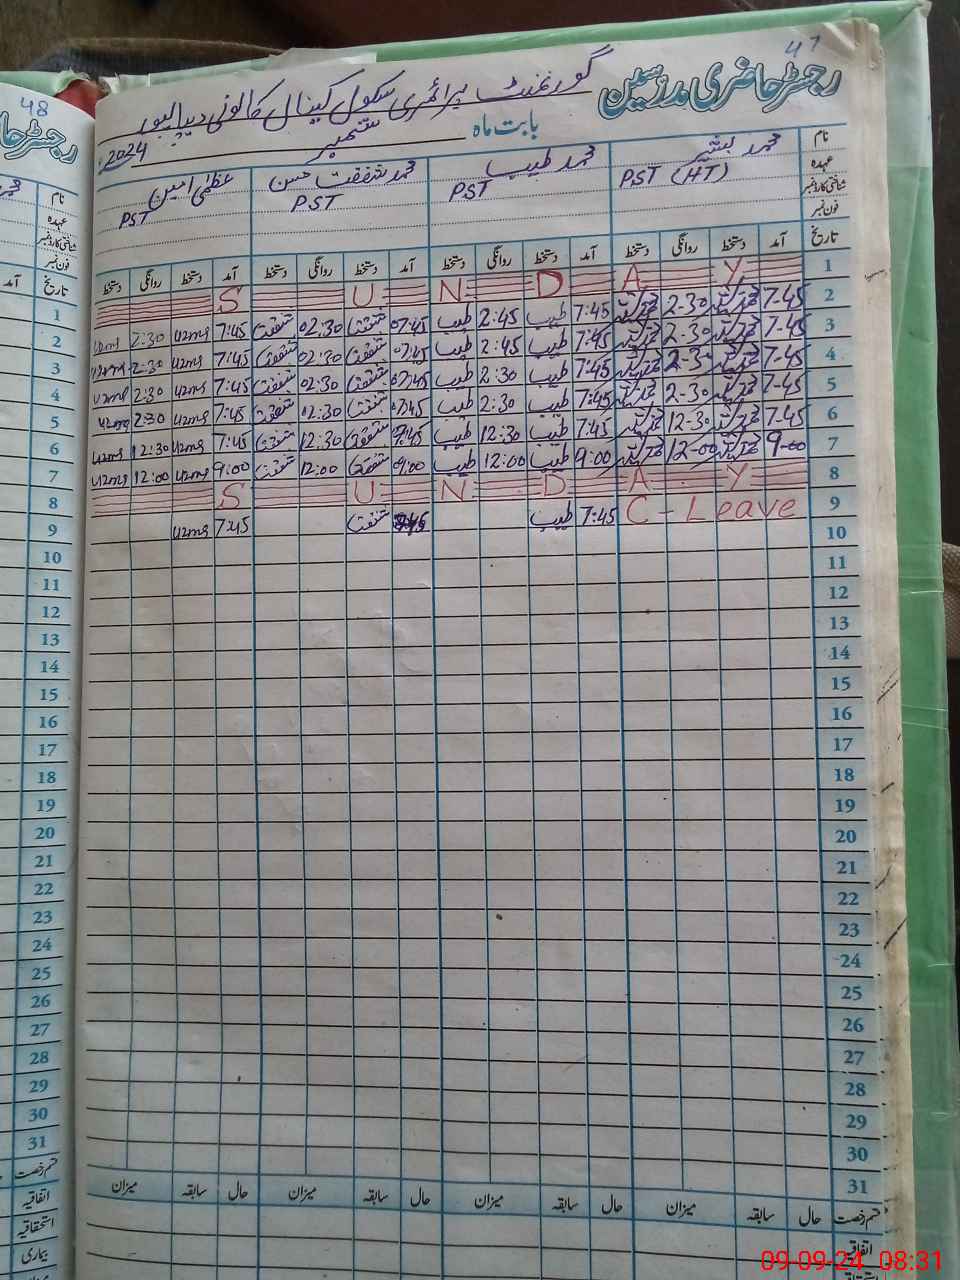 47
رجسٹر حاضری مدرسین
گورنمنٹ پرائمری سکول کینال کالونی دیپالپور
بابت ماہ ستمبر 2024
نام محمد بشیر محمد طیب محمد شفقت حسن عظمیٰ امین
عہدہ PST (HT) PST PST PST
شناختی کارڈ نمبر
فون نمبر
تاریخ آمد دستخط روانگی دستخط آمد دستخط روانگی دستخط آمد دستخط روانگی دستخط آمد دستخط روانگی دستخط
1 S U N D A Y
2 7-45 2-30 7:45 طیب 2:45 طیب 07:45 شفقت 02:30 شفقت 7:45 uzma 2:30 uzma
3 7-45 2-30 7:45 طیب 2:45 طیب 07:45 شفقت 02:30 شفقت 7:45 uzma 2:30 uzma
4 7-45 2-30 7:45 طیب 2:30 طیب 07:45 شفقت 02:30 شفقت 7:45 uzma 2:30 uzma
5 7-45 2-30 7:45 طیب 2:30 طیب 07:45 شفقت 02:30 شفقت 7:45 uzma 2:30 uzma
6 7-45 12-30 7:45 طیب 12:30 طیب 07:45 شفقت 12:30 شفقت 7:45 uzma 12:30 uzma
7 9-00 12-00 9:00 طیب 12:00 طیب 09:00 شفقت 12:00 شفقت 9:00 uzma 12:00 uzma
8 S U N D A Y
9 C - Leave 7:45 طیب شفقت 7:45 uzma
10
11
12
13
14
15
16
17
18
19
20
21
22
23
24
25
26
27
28
29
30
31
قسم رخصت حال سابقہ میزان حال سابقہ میزان حال سابقہ میزان حال سابقہ میزان
اتفاقیہ
48
نام
عہدہ
شناختی کارڈ نمبر
فون نمبر
تاریخ آمد
1
2
3
4
5
6
7
8
9
10
11
12
13
14
15
16
17
18
19
20
21
22
23
24
25
26
27
28
29
30
31
قسم رخصت
اتفاقیہ
استحقاقیہ
بیماری
09-09-24 08:31